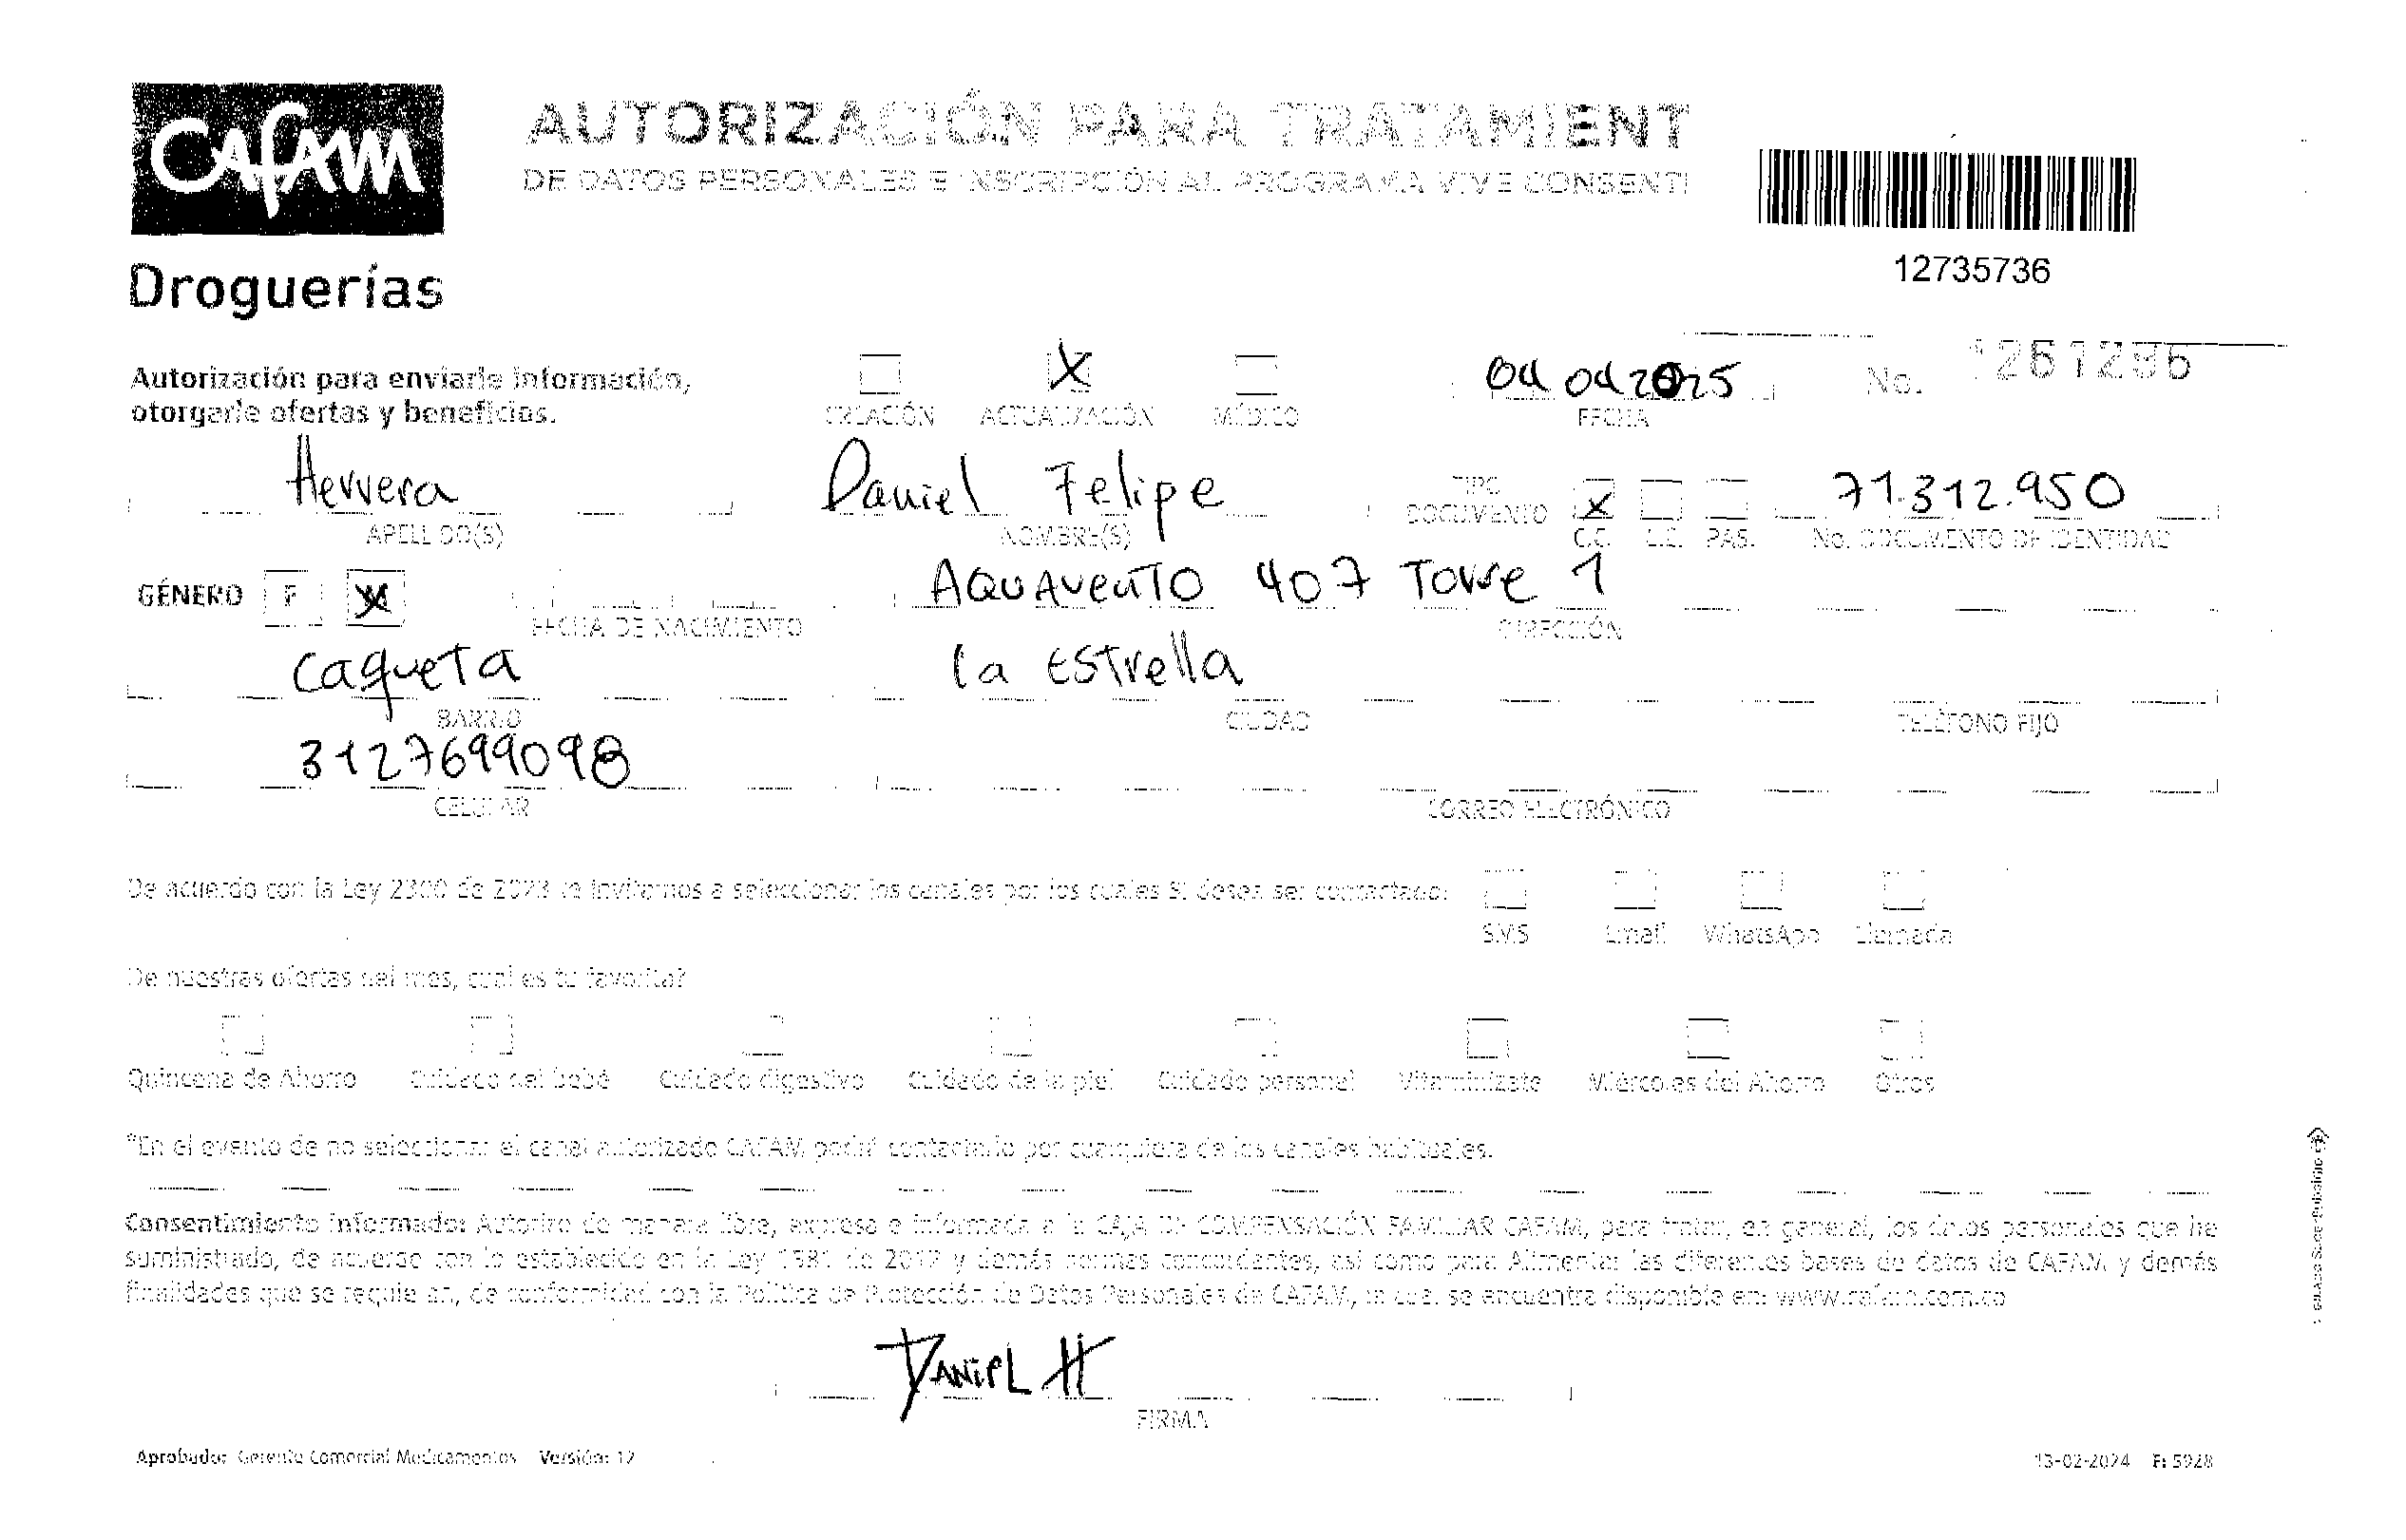 CAFAM
AUTORIZACIÓN PARA TRATAMIENT
DE DATOS PERSONALES E INSCRIPCIÓN AL PROGRAMA VIVE CONSENTI
12735736
Droguerías
Autorización para enviarle información,
otorgarle ofertas y beneficios.
CREACIÓN ACTUALIZACIÓN X MÉDICO
04 04 2025
FECHA
No. 1261286
Herrera
APELLIDO(S)
Daniel Felipe
NOMBRE(S)
TIPO
DOCUMENTO
X
C.C. C.E. PAS.
71.312.950
No. DOCUMENTO DE IDENTIDAD
GÉNERO F M X
FECHA DE NACIMIENTO
AQUAVENTO 407 Torre 1
DIRECCIÓN
Caqueta
BARRIO
la Estrella
CIUDAD
TELÉFONO FIJO
3127699098
CELULAR
CORREO ELECTRÓNICO
De acuerdo con la Ley 2300 de 2023 te invitamos a seleccionar los canales por los cuales SI desea ser contactado:
SMS Email WhatsApp Llamada
De nuestras ofertas del mes, cual es tu favorita?
Quincena de Ahorro Cuidado del bebé Cuidado digestivo Cuidado de la piel Cuidado personal Vitaminízate Miércoles del Ahorro Otros
*En el evento de no seleccionar el canal autorizado CAFAM podrá contactarlo por cualquiera de los canales habituales.
Consentimiento informado: Autorizo de manera libre, expresa e informada a la CAJA DE COMPENSACIÓN FAMILIAR CAFAM, para tratar, en general, los datos personales que he
suministrado, de acuerdo con lo establecido en la Ley 1581 de 2012 y demás normas concordantes, así como para Alimentar las diferentes bases de datos de CAFAM y demás
finalidades que se requieran, de conformidad con la Política de Protección de Datos Personales de CAFAM, la cual se encuentra disponible en: www.cafam.com.co
DANIEL H
FIRMA
Aprobado: Gerente Comercial Medicamentos Versión: 12
13-02-2024 F: 5928